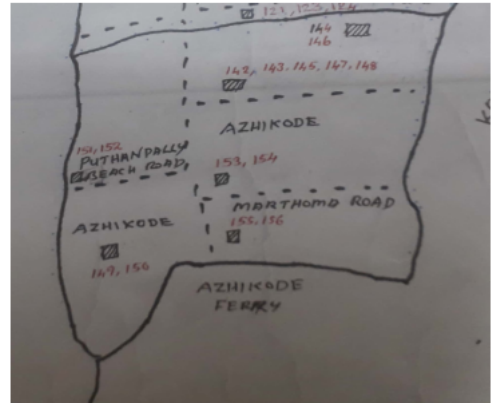 121, 123, 124
144
146
142, 143, 145, 147, 148
AZHIKODE
151, 152
PUTHANPALLY
BEACH ROAD
153, 154
MARTHOMA ROAD
AZHIKODE
155, 156
149, 150
AZHIKODE
FERRY